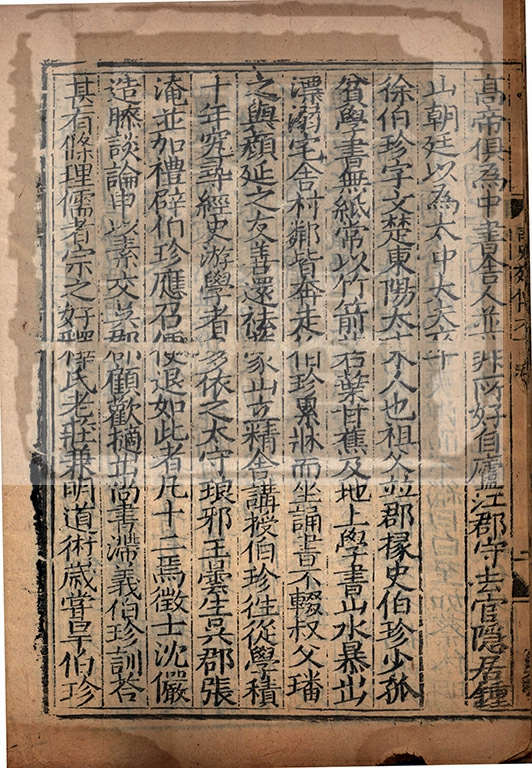 高帝俱為中書舍人並非所好自廬江郡守去官隱居鍾
山朝廷以為太中大夫卒
徐伯珍字文楚東陽太末人也祖父並郡掾史伯珍少孤
貧學書無紙常以竹箭若葉甘蕉及地上學書山水暴出
漂溺宅舍村鄉皆奔走伯珍累牀而坐誦書不輟叔父璠
之與顏延之友善還袪蒙山立精舍講授伯珍往從學積
十年究尋經史游學者多依之太守琅邪王曇生吳郡張
淹並加禮辟伯珍應召便退如此者凡十二焉徵士沈儼
造膝談論申以素交吳郡顧歡擿出尚書滯義伯珍訓答
甚有條理儒者宗之好釋氏老莊兼明道術歲嘗旱伯珍